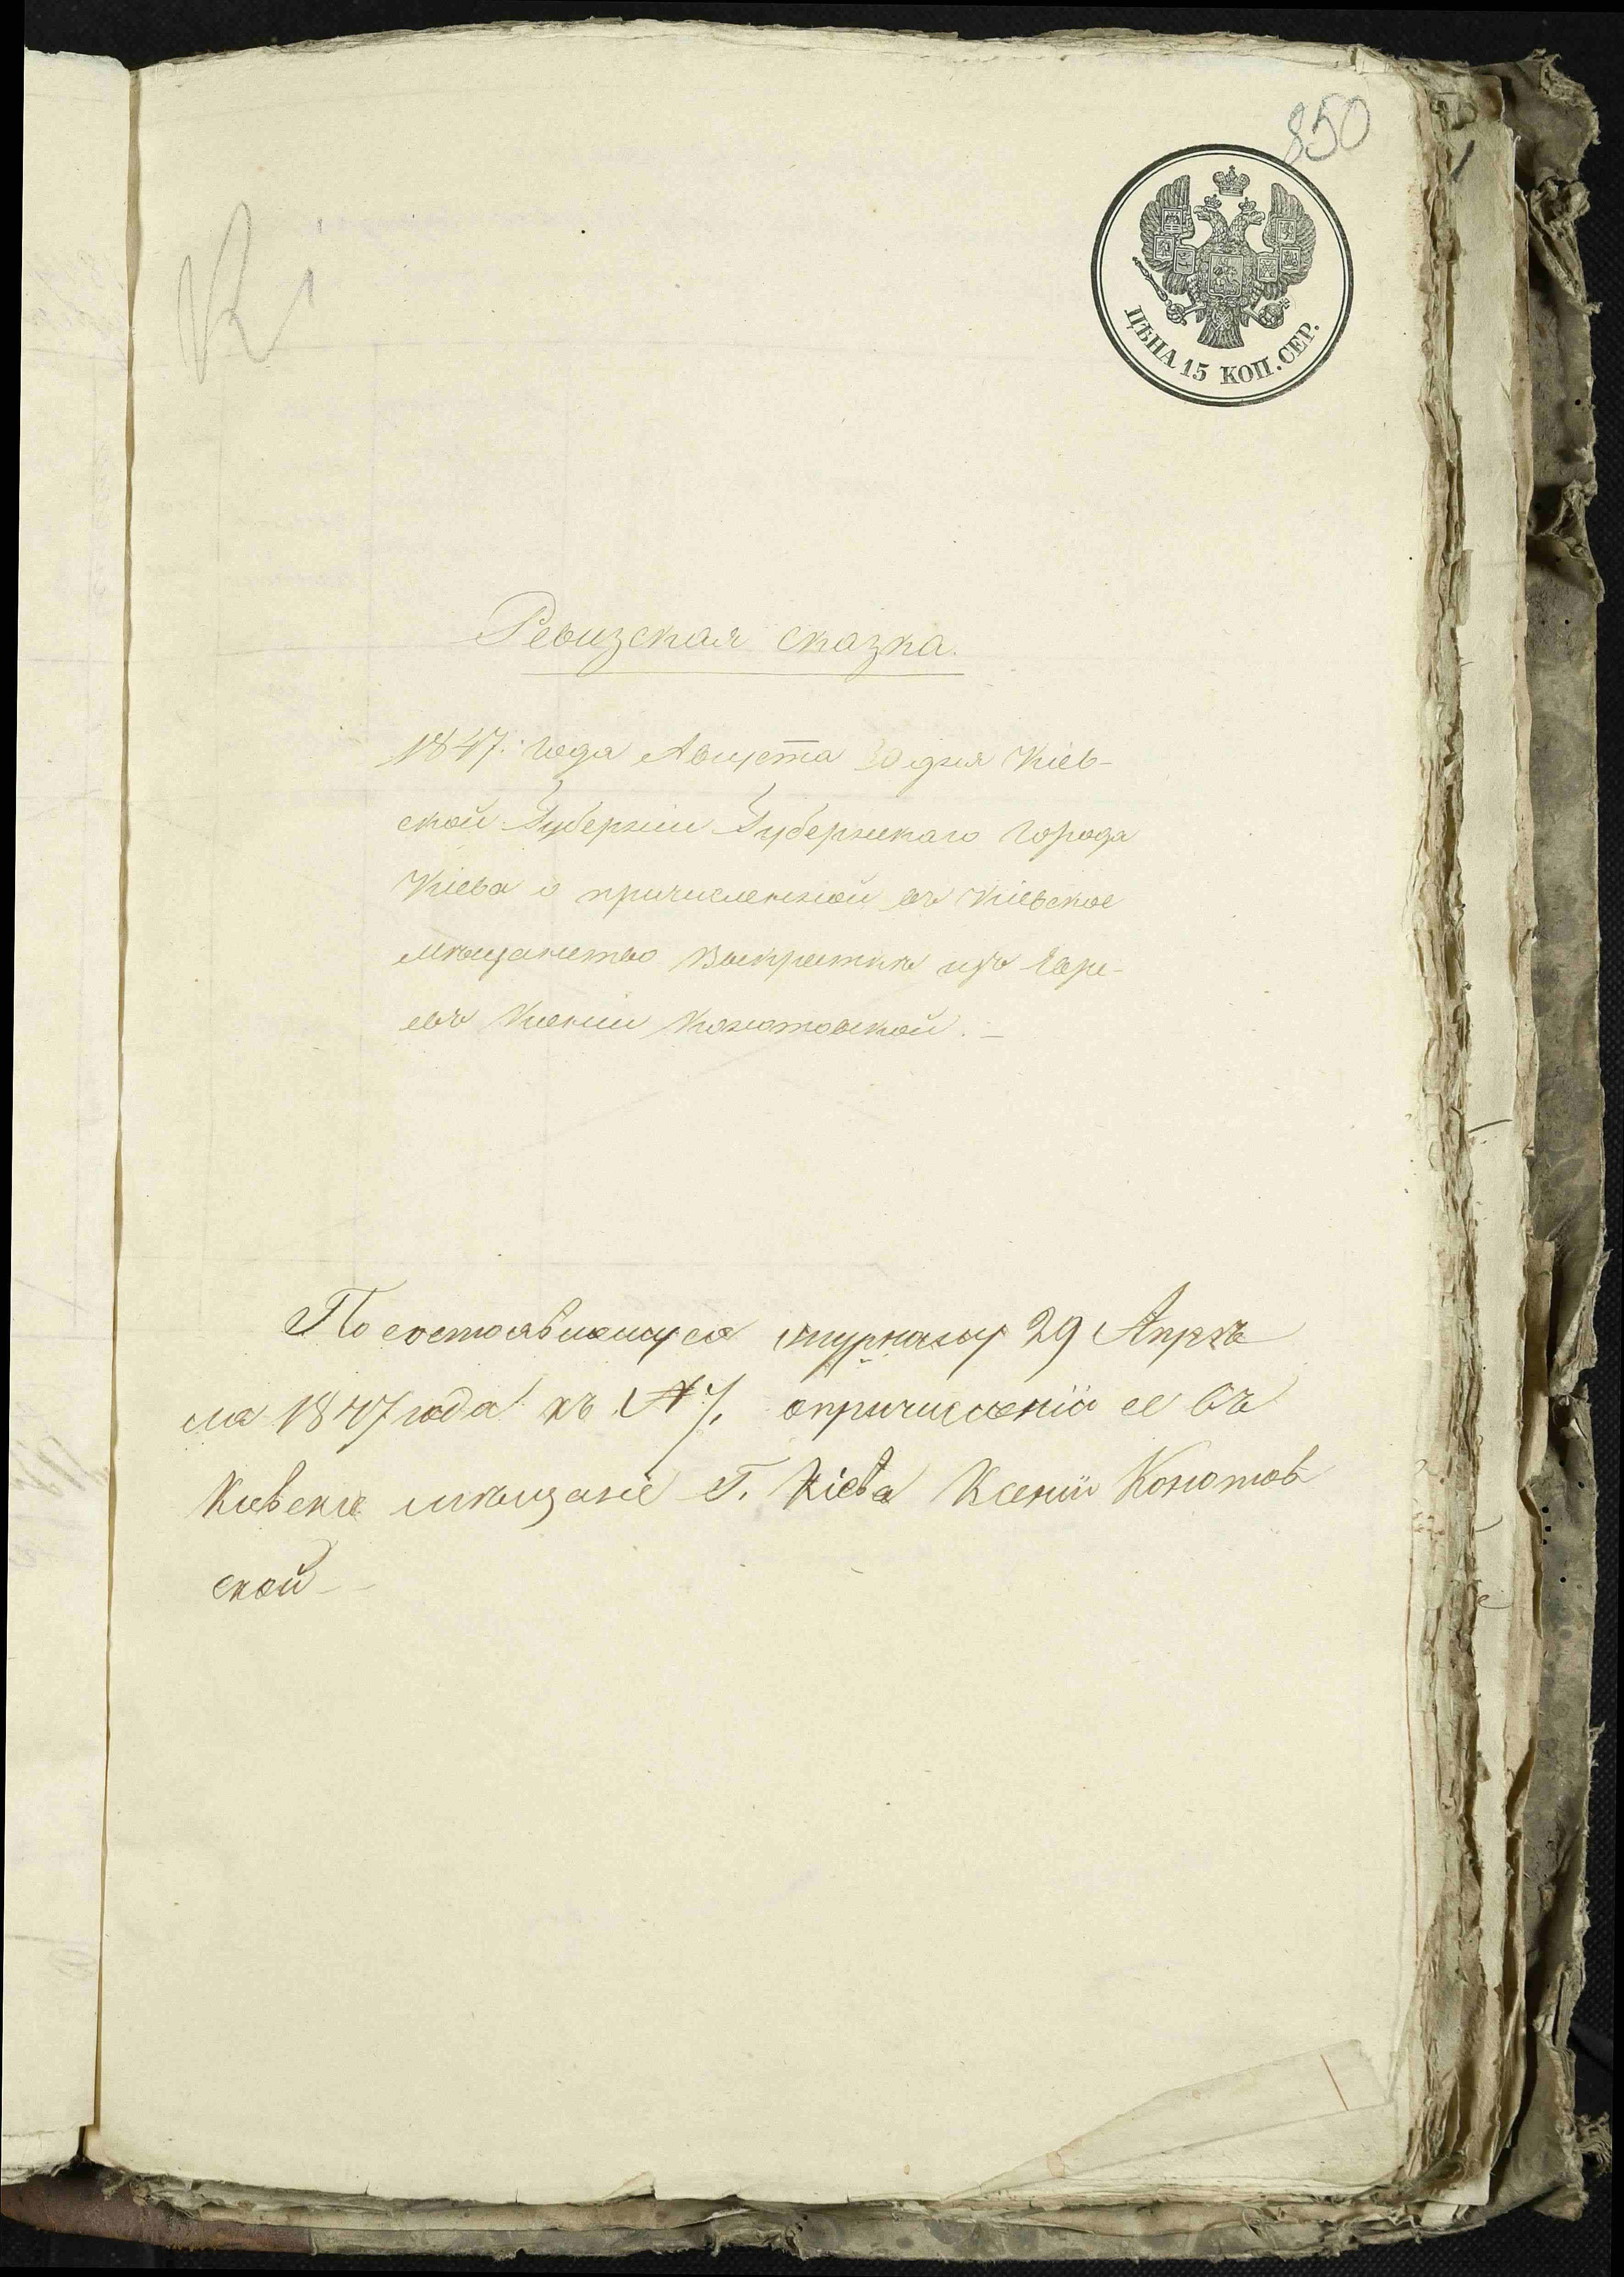 850
ЦѢНА 15 КОП. СЕР.
Ревизская сказка.
1847. года Августа 30 дня Кіев-
ской Губерніи Губернскаго города
Кіева о причисленной въ Кіевское
мѣщанство Выкресткѣ изъ Евре-
евъ Ксеніи Конотовской. —
По состоявшемуся журналу 29 Апрѣ
ля 1847 года къ № 7, опричисленіи ее въ
Киевские мѣщане Г. Кіева Ксеніи Конотов
ской —